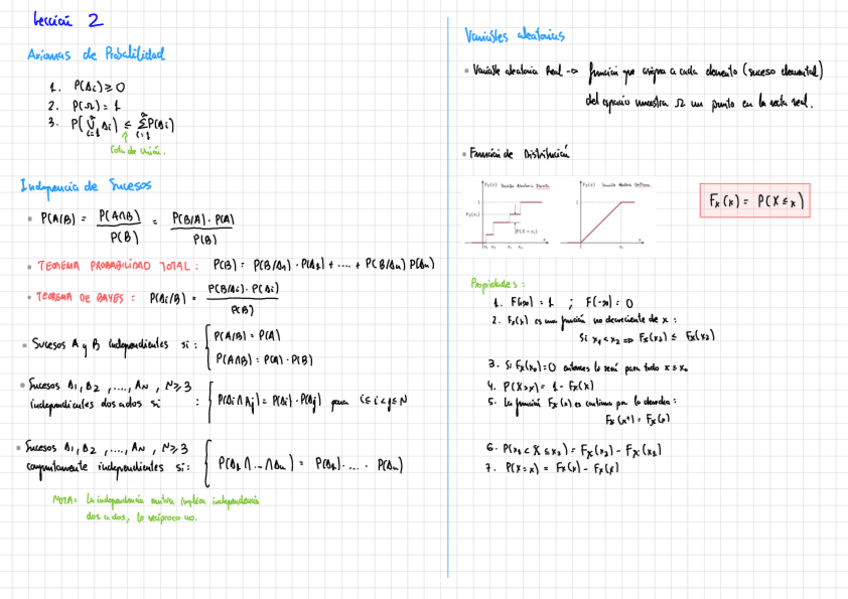 Lección 2
Axiomas de Probabilidad
1. P(Ai) ≥ 0
2. P(Ω) = 1
3. P(⋃_{i=1}^{∞} Ai) ≤ ∑_{i=1}^{∞} P(Ai)
Cota de Unión.
Indepencia de Sucesos
• P(A/B) = P(A∩B)/P(B) = P(B/A)·P(A)/P(B)
• TEOREMA PROBABILIDAD TOTAL: P(B) = P(B/A1)·P(A1) + .... + P(B/An) P(An)
• TEOREMA DE BAYES: P(Ai/B) = P(B/Ai)·P(Ai)/P(B)
• Sucesos A y B independientes si: { P(A/B) = P(A)
P(A∩B) = P(A)·P(B)
• Sucesos A1, A2, ...., AN, N≥3
independientes dos a dos si : { P(Ai∩Aj) = P(Ai)·P(Aj) para 1≤i<j≤N
• Sucesos A1, A2, ...., AN, N≥3
conjuntamente independientes si: { P(A1∩...∩An) = P(A1)·...·P(An)
NOTA: La independencia mutua implica independencia
dos a dos, lo recíproco no.
Variables aleatorias
• Variable aleatoria Real → función que asigna a cada elemento (suceso elemental)
del espacio muestra Ω un punto en la recta real.
• Función de Distribución
Fx(x) Variable Aleatoria Discreta
Fx(x) Variable Aleatoria Continua
Fx(x) = P(X ≤ x)
Propiedades:
1. F(∞) = 1 ; F(-∞) = 0
2. Fx(x) es una función no decreciente de x:
Si x1 < x2 ⇒ Fx(x1) ≤ Fx(x2)
3. Si Fx(x0) = 0 entonces lo será para todo x ≤ x0
4. P(X>x) = 1 - Fx(x)
5. La función Fx(x) es continua por la derecha:
Fx(x⁺) = Fx(x)
6. P(x1 < X ≤ x2) = Fx(x2) - Fx(x1)
7. P(X=x) = Fx(x) - Fx(x⁻)